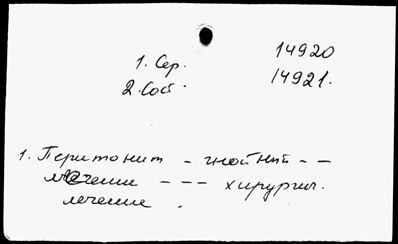 1. Сер. 14920
2. Сов. 14921.
1. Перитонит - гнойный - -
лечение - - - хирургич.
лечение.